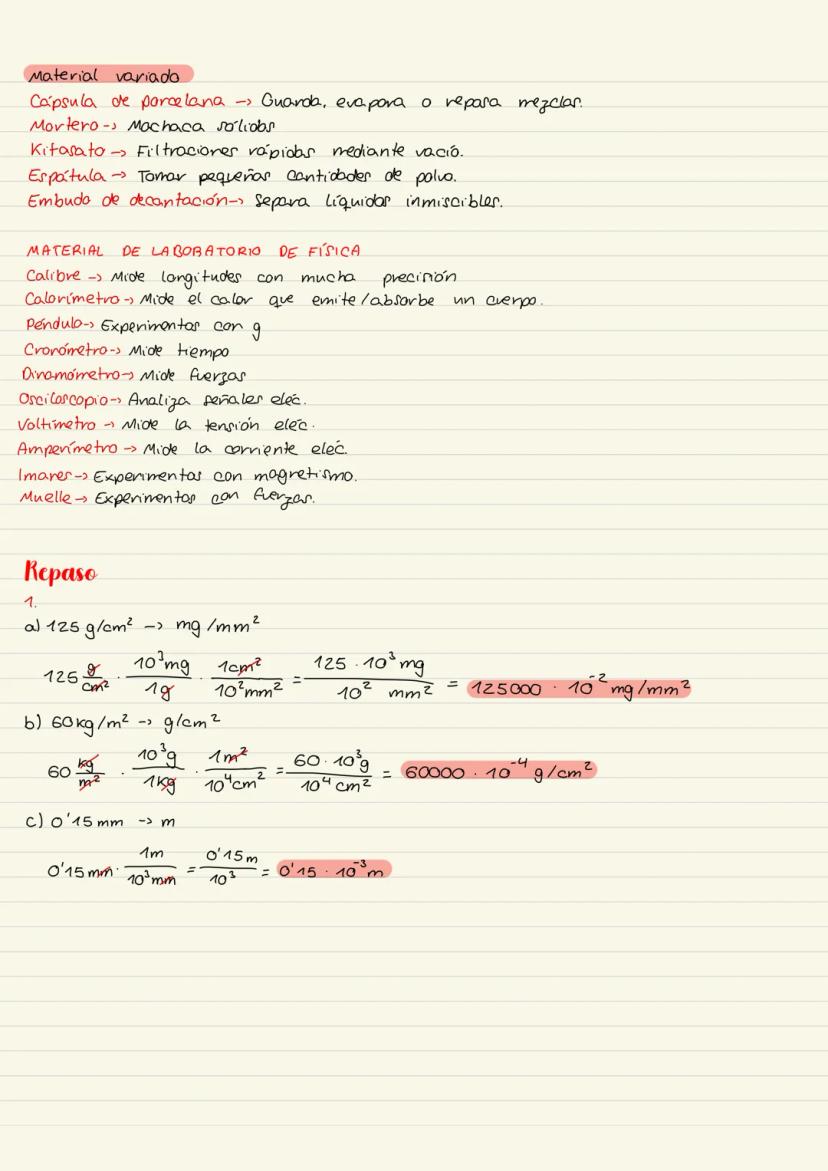 Material variado
Cápsula de porcelana -> Guarda, evapora o repasa mezclas.
Mortero -> Machaca sólidos
Kitasato -> Filtraciones rápidas mediante vació.
Espátula -> Tomar pequeñas cantidades de polvo.
Embudo de decantación -> Separa líquidos inmiscibles.
MATERIAL DE LABORATORIO DE FÍSICA
Calibre -> Mide longitudes con mucha precisión
Calorímetro -> Mide el calor que emite/absorbe un cuerpo.
Péndulo -> Experimentos con g
Cronómetro -> Mide tiempo
Dinamómetro -> Mide fuerzas
Osciloscopio -> Analiza señales eléc.
Voltímetro -> Mide la tensión eléc.
Amperímetro -> Mide la corriente eléc.
Imanes -> Experimentos con magnetismo.
Muelle -> Experimentos con fuerzas.
Repaso
1.
a) 125 g/cm² -> mg/mm²
125 g/cm² · 10³mg/1g · 1cm²/10²mm² = 125 · 10³mg/10² mm² = 125000 · 10⁻² mg/mm²
b) 60kg/m² -> g/cm²
60 kg/m² · 10³g/1kg · 1m²/10⁴cm² = 60 · 10³g/10⁴ cm² = 60000 · 10⁻⁴ g/cm²
c) 0'15 mm -> m
0'15mm · 1m/10³mm = 0'15m/10³ = 0'15 · 10⁻³m